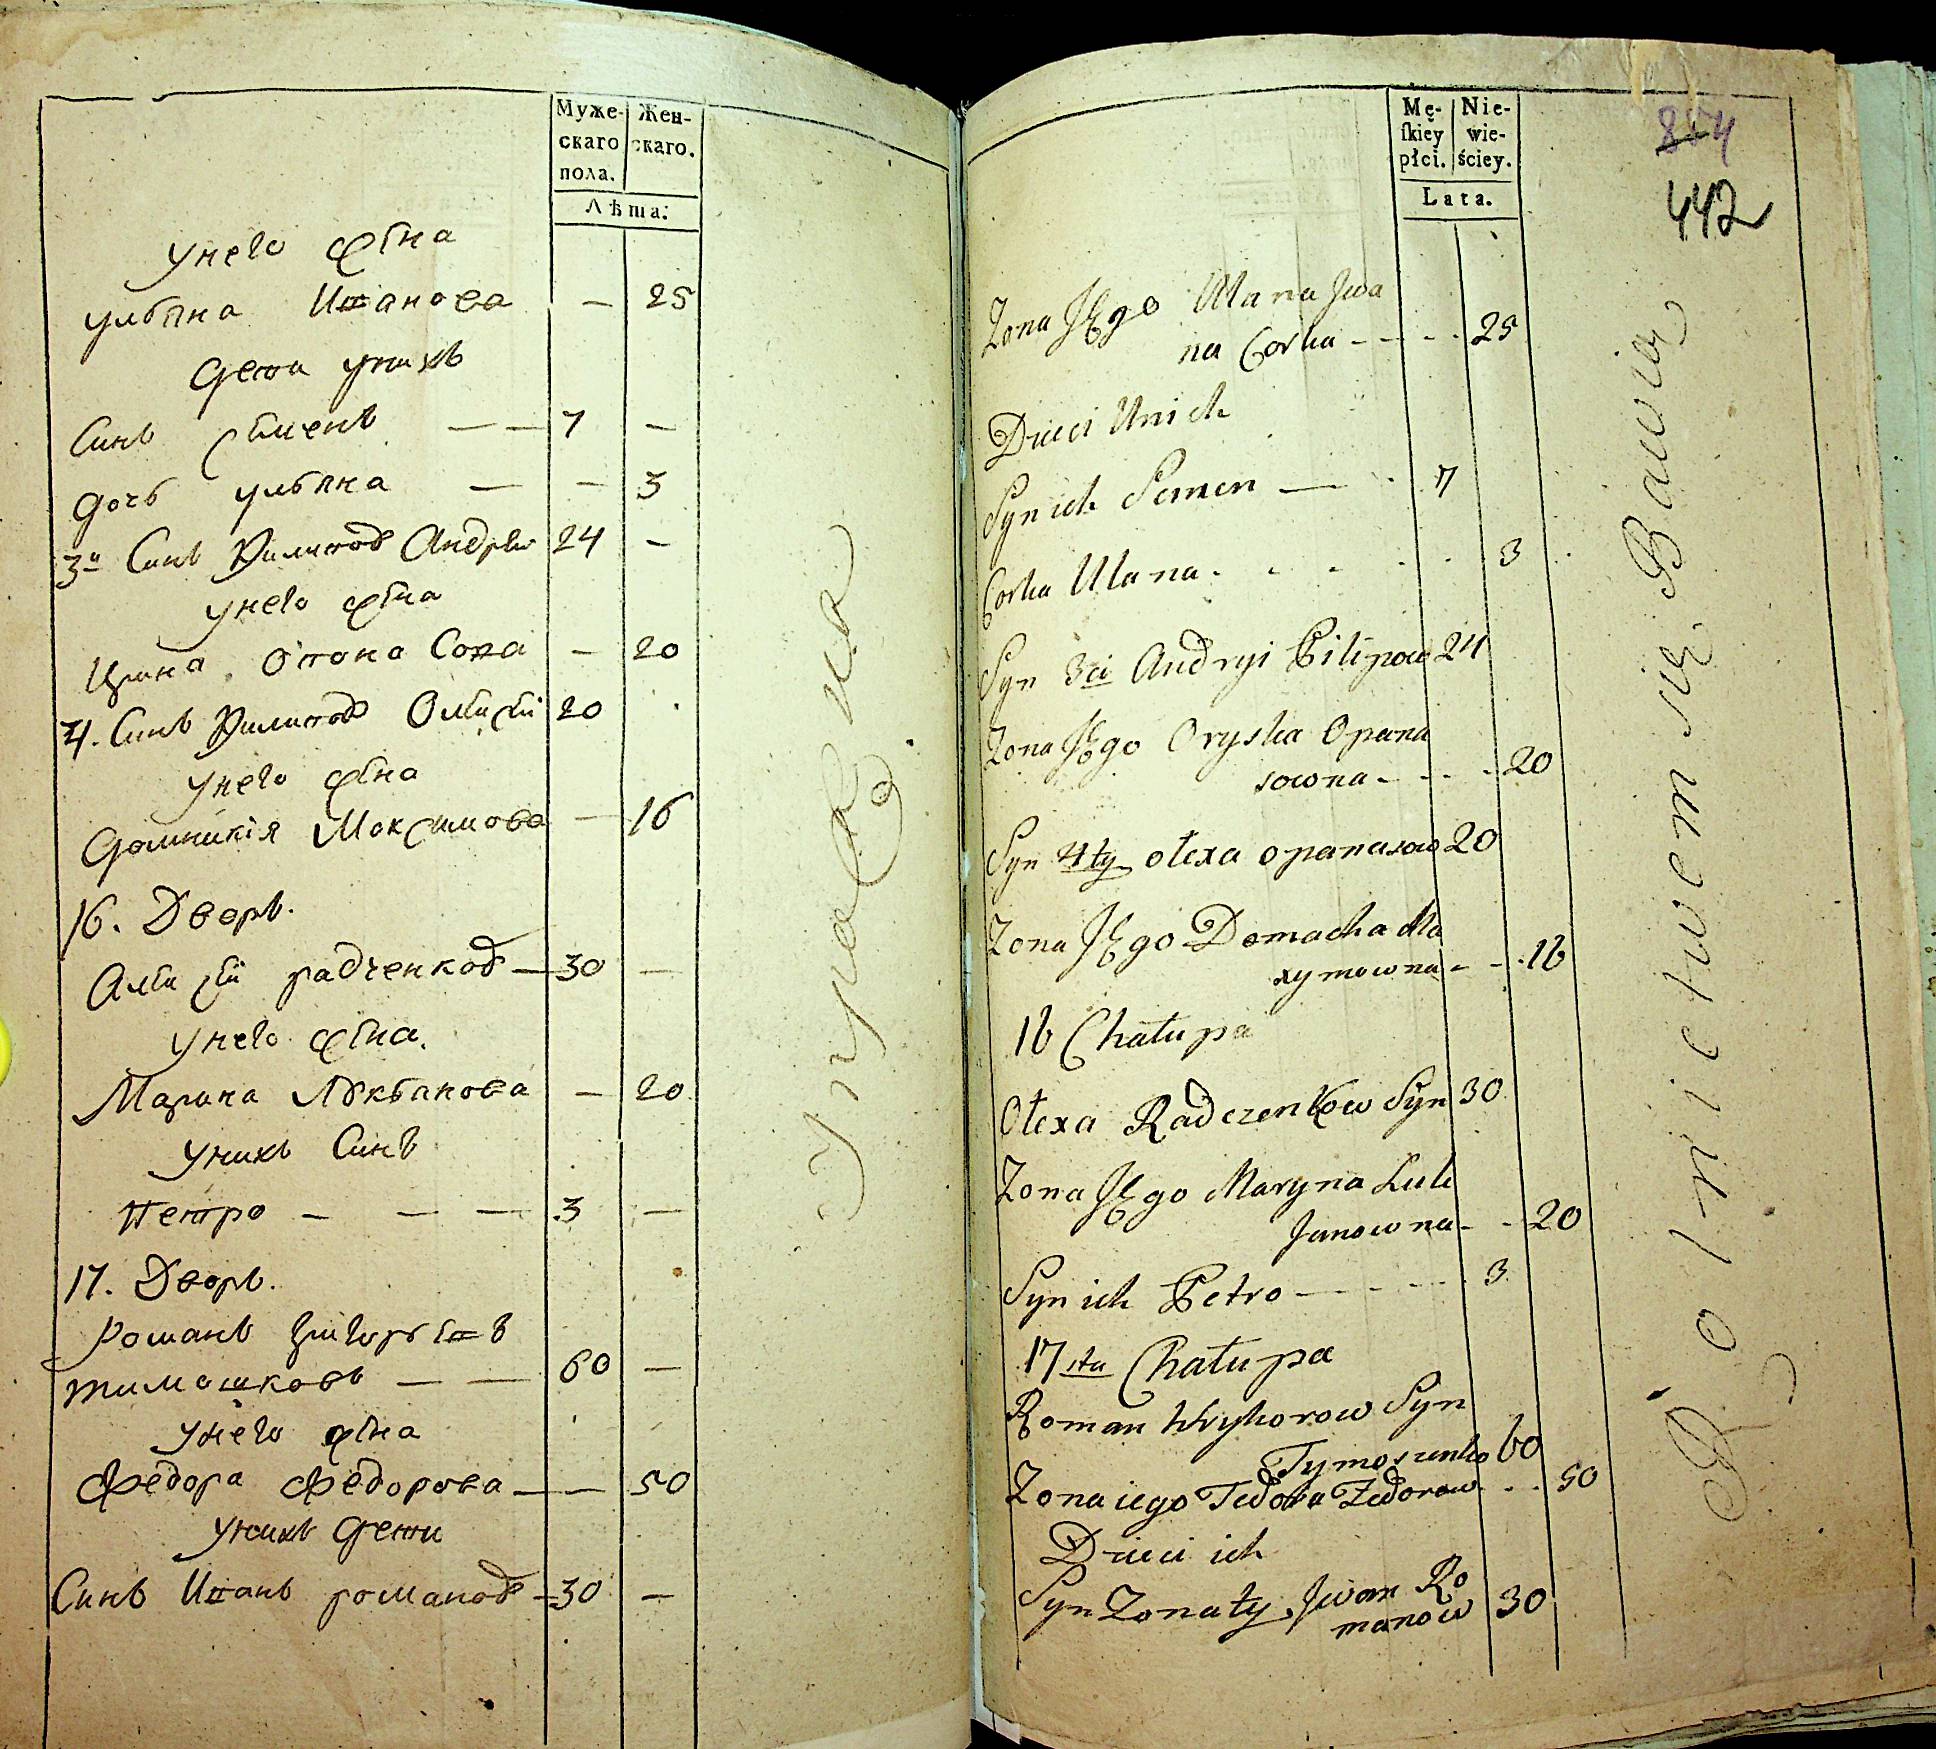 Муже- Жен-
скаго скаго.
пола.
Лѣта:
унего жена
улбяна Иванова — 25
дети унихъ
Синъ Семенъ — — 7 —
дочь улбяна — — 3
3й Синъ Филипов Андрей 24 —
унего жена
Ирина — 20
4. Синъ Филипов Олексѣй 20
унего жена
домникія Максимова — 16
16. Дворъ.
Алексѣй радченков — 30 —
унего жена.
Марина Лукбянова — 20
унихъ Синъ
Петро — — — 3 —
17. Дворъ.
Романъ Григорьевъ
тимошковъ — — 60 —
унего жена
Федора Федорова — — 50
унихъ дети
Синъ Иванъ романов — 30 —
Mę- Nie-
ſkiey wie-
płci. ściey.
Lata.
874
442
Zona JEgo Ulana Jwa
na Corka - - - - 25
Dzieci Unich
Syn ich Semen — - 7
Corka Ulana - - - - - 3
Syn 3ci Andryi Pilipow 24
Zona JEgo Oryska Opana
sowna - - - - 20
Syn 4ty ołexa opanasow 20
Zona JEgo Domacha Ma
xymowna - - - 16
16 Chałupa
Ołexa Radczenkow Syn 30
Zona JEgo Maryna Luk
Janowna - - 20
Syn ich Petro - - - - - 3
17sta Chałupa
Roman Hryhorow Syn
Tymoszenko 60
Zona iego Fedora Fedorow - - - 50
Dzieci ich
Syn Zonaty Jwan Ro
manow 30
Rolnictwem się Bawią